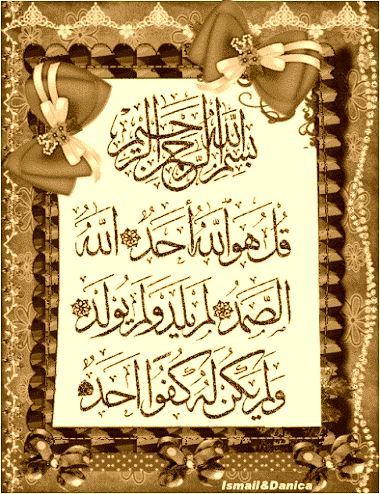 بِسْمِ اللَّهِ الرَّحْمَنِ الرَّحِيمِ
قُلْ هُوَ اللَّهُ أَحَدٌ ۞ اللَّهُ
الصَّمَدُ ۞ لَمْ يَلِدْ وَلَمْ يُولَدْ ۞
وَلَمْ يَكُنْ لَهُ كُفُوًا أَحَدٌ ۞
Ismail&Danica